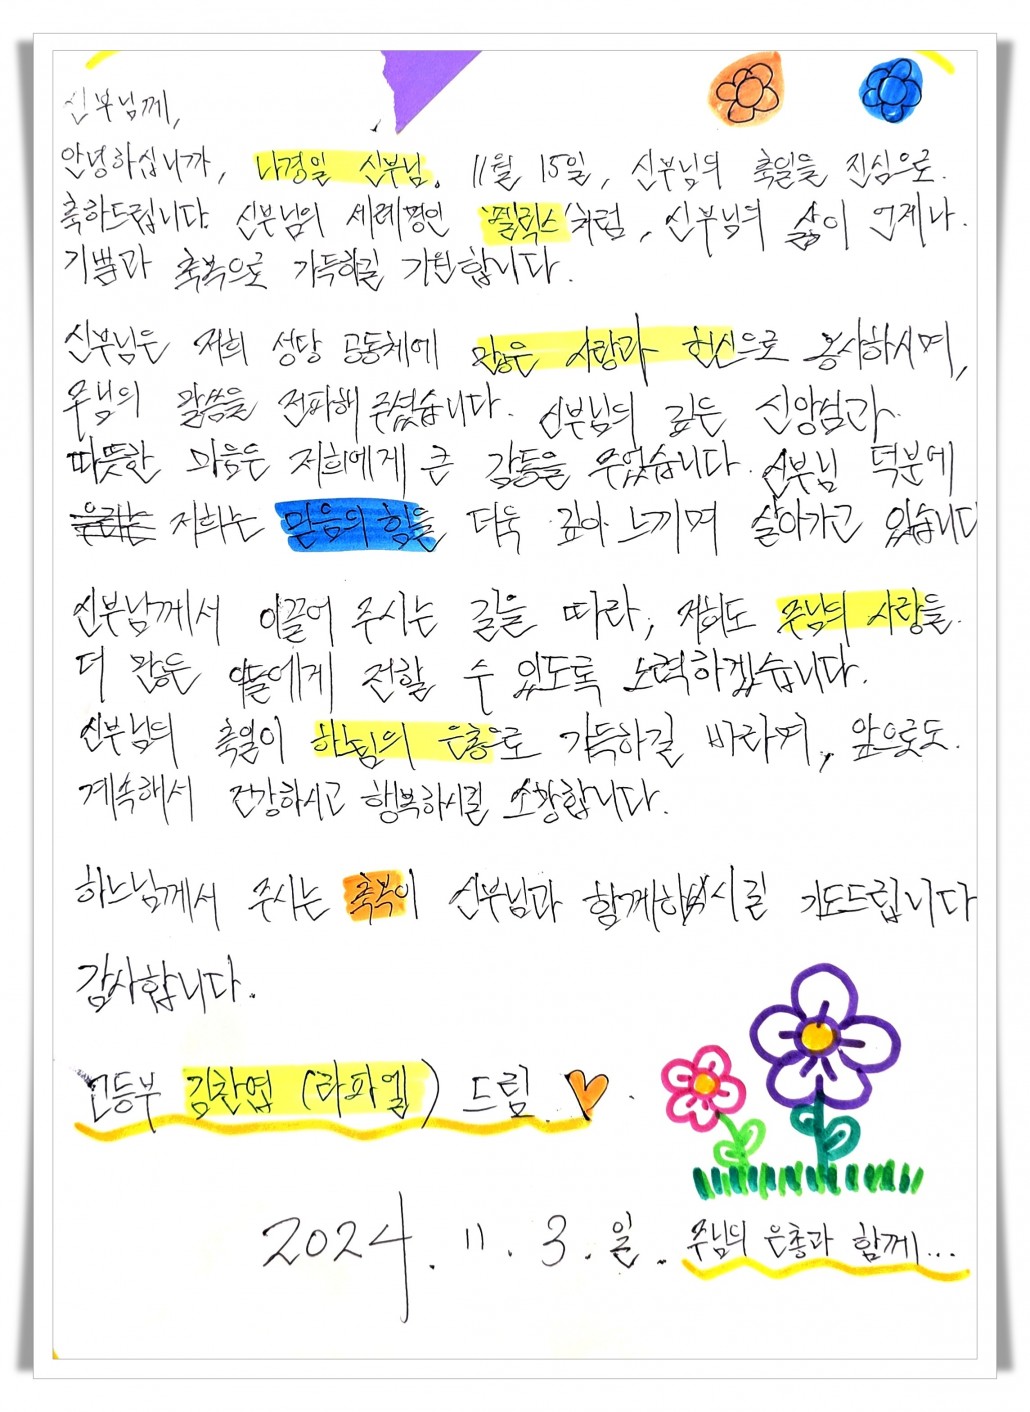 신부님께,
안녕하십니까, 나경일 신부님. 11월 15일, 신부님의 축일을 진심으로
축하드립니다. 신부님의 세례명인 '펠릭스'처럼, 신부님의 삶이 언제나
기쁨과 축복으로 가득하길 기원합니다.
신부님은 저희 성당 공동체에 많은 사랑과 헌신으로 봉사하시며,
주님의 말씀을 전파해 주셨습니다. 신부님의 깊은 신앙심과
따뜻한 마음은 저희에게 큰 감동을 주었습니다. 신부님 덕분에
우리는 저희는 믿음의 힘을 더욱 깊이 느끼며 살아가고 있습니다
신부님께서 이끌어 주시는 길을 따라, 저희도 주님의 사랑을
더 많은 이들에게 전할 수 있도록 노력하겠습니다.
신부님의 축일이 하느님의 은총으로 가득하길 바라며, 앞으로도
계속해서 건강하시고 행복하시길 소망합니다.
하느님께서 주시는 축복이 신부님과 함께하시길 기도드립니다
감사합니다.
고등부 김찬엽 (라파엘) 드림
2024. 11. 3. 일. 주님의 은총과 함께...